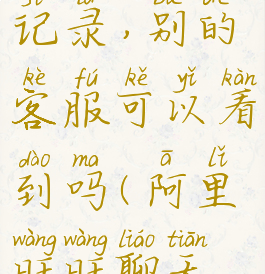 记录,别的
kè fú kě yǐ kàn
客服可以看
dào ma ā lǐ
到吗(阿里
wàng wàng liáo tiān
旺旺聊天